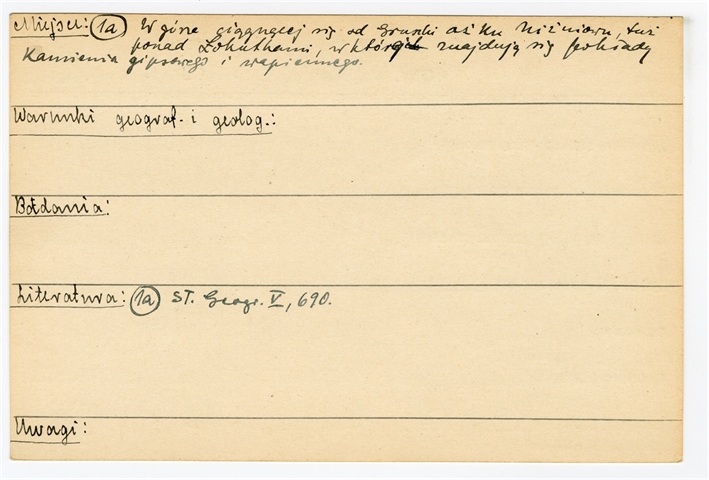 Miejsc: (1a) W górze ciągnącej się od Gruszki aż ku Niżniowu, tuż
ponad Łokutkami, w których znajdują się pokłady
Kamienia gipsowego i wapiennego.
Warunki geograf. i geolog.:
Badania:
Literatura: (1a) St. Geogr. V, 690.
Uwagi: